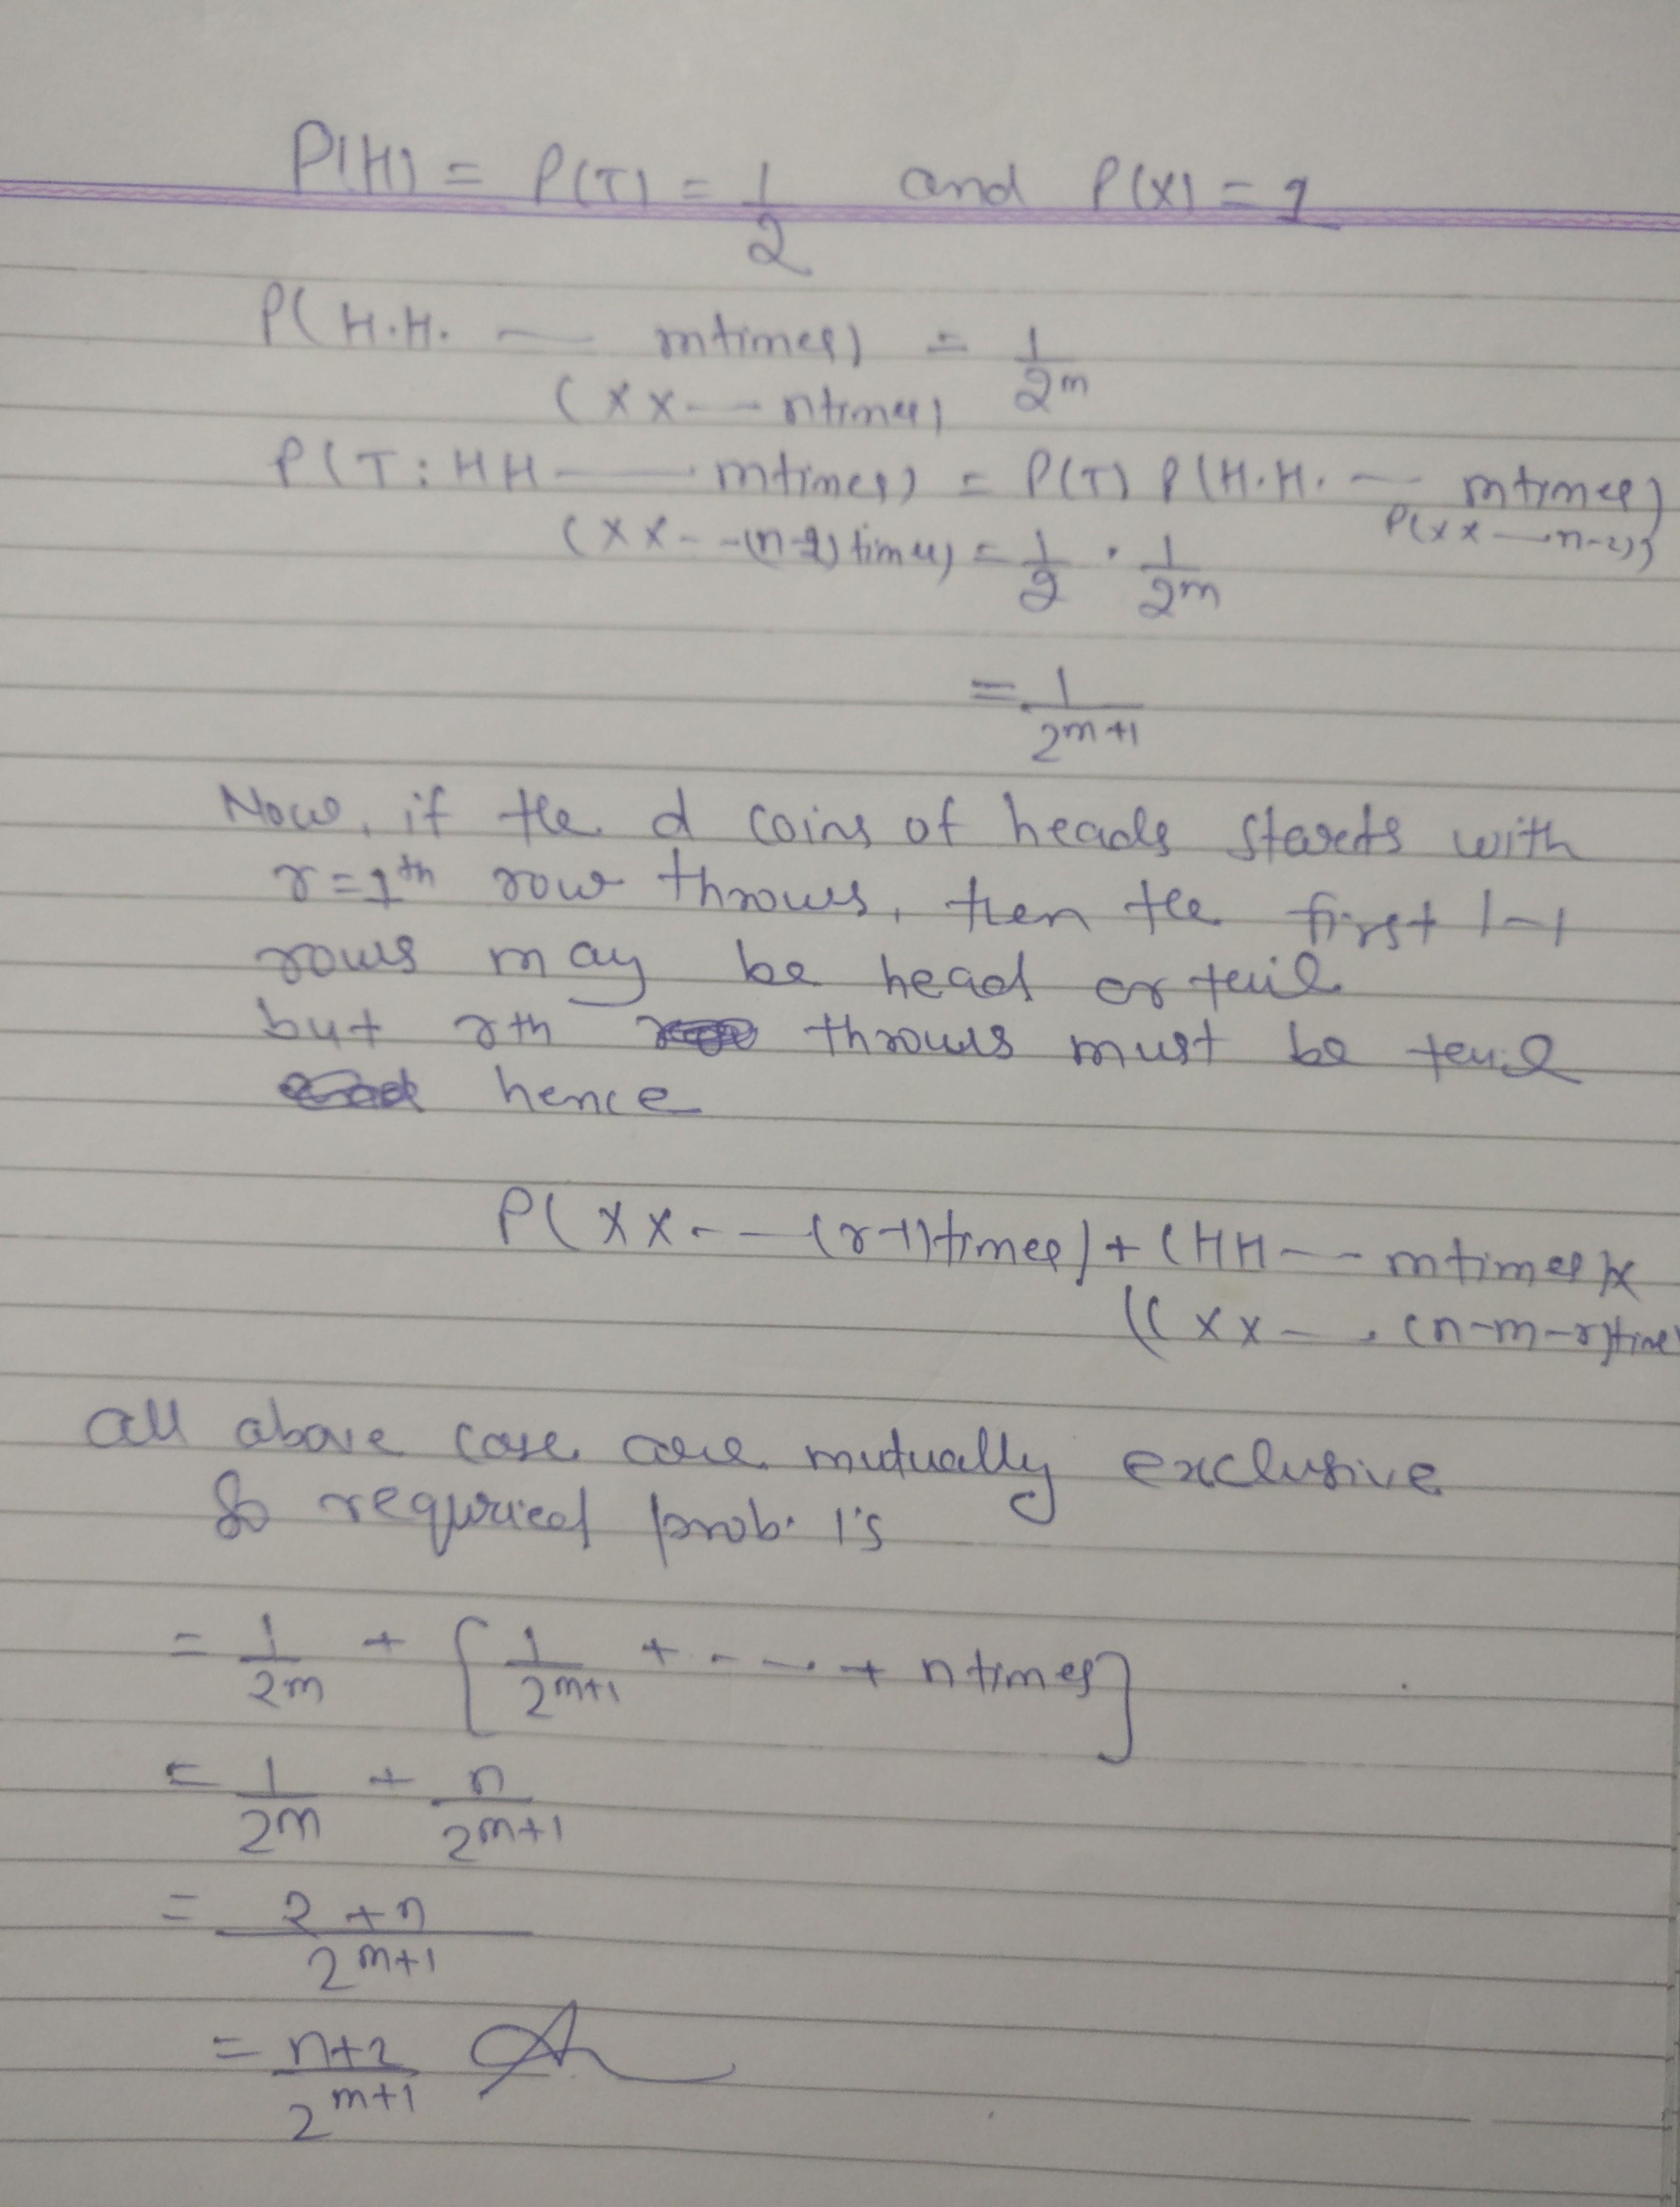 P(H) = P(T) = 1/2 and P(X) = 1
P(H.H. — mtimes) = 1/2^m
(XX-- ntimes)
P(T: HH — mtimes) = P(T) P(H.H. — mtimes)
P(XX — n-2))
(XX--(n-2)times) = 1/2 . 1/2^m
= 1/2^{m+1}
Now, if the d coins of heads starts with
r=1th row throws, then the first 1-1
rows may be head or tail
but rth throws must be tail
hence
P(XX-- (r-1)times) + (HH-- mtimes)x
((XX-. (n-m-r)time)
all above case are mutually exclusive
So required prob. is
= 1/2^m + [1/2^{m+1} + - - .. + ntimes]
= 1/2^m + n/2^{m+1}
= 2+n/2^{m+1}
= n+2/2^{m+1}